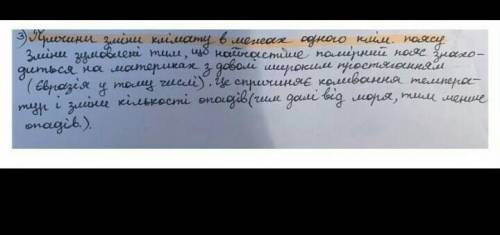 3) Причини зміни клімату в межах одного клім. поясу
Зміни зумовлені тим, що найчастіше помірний пояс знахо-
диться на материках з доволі широким простяганням
(Євразія у тому числі). Це спричиняє коливання темпера-
тур і зміни кількості опадів (чим далі від моря, тим менше
опадів.).